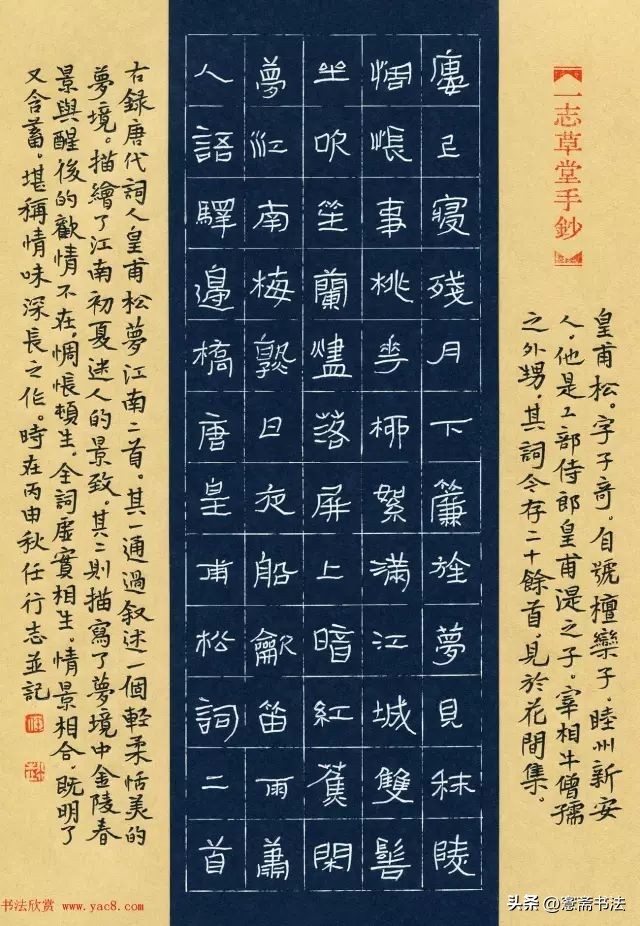 一志草堂手鈔
皇甫松。字子奇。自號檀欒子。睦州新安
人。他是工部侍郎皇甫湜之子。宰相牛僧孺
之外甥。其詞今存二十餘首。見於花間集。
廔上寢殘月下簾旌夢見秣陵
惆悵事桃花柳絮滿江城雙髻
坐吹笙蘭燼落屏上暗紅蕉閑
夢江南梅熟日夜船龡笛雨蕭
人語驛邊橋唐皇甫松詞二首
右錄唐代詞人皇甫松夢江南二首。其一通過叙述一個輕柔恬美的
夢境。描繪了江南初夏迷人的景致。其二則描寫了夢境中金陵春
景與醒後的歡情不在，惆悵頓生。全詞虛實相生。情景相合，既明了
又含蓄。堪稱情味深長之作。時在丙申秋任行志並記
书法欣赏 www.yac8.com
头条 @愙斋书法